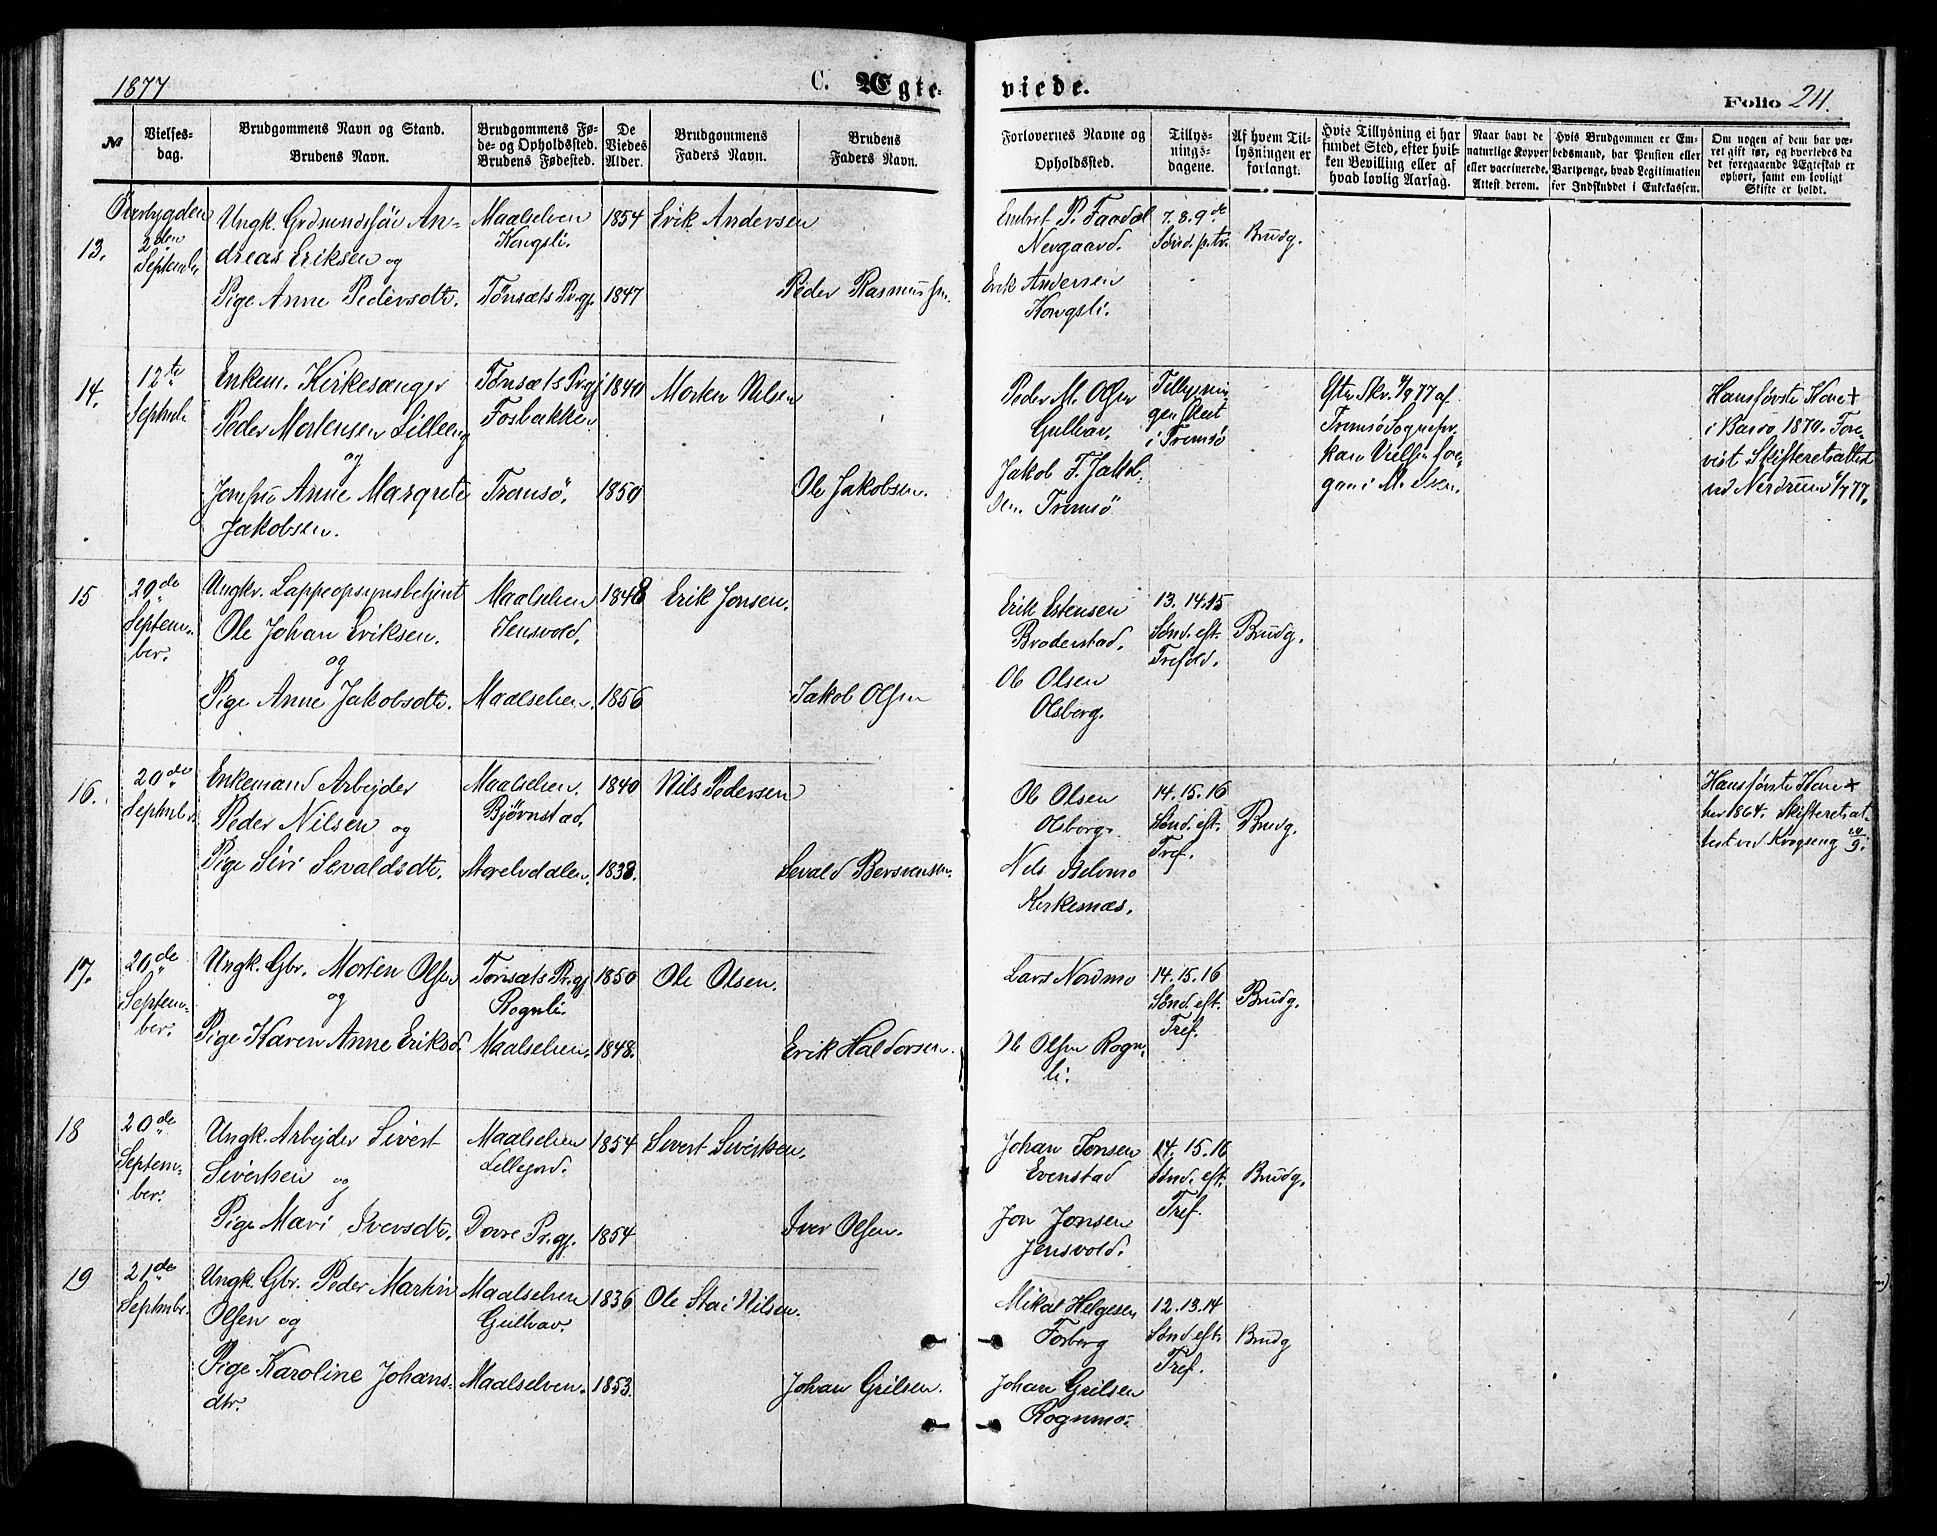 1877
C. Ægte-
viede.
Folio 211.
№
Vielses-
dag.
Brudgommens Navn og Stand.
Brudens Navn.
Brudgommens Fø-
de- og Opholdssted.
Brudens Fødested.
De
Viedes
Alder.
Brudgommens
Faders Navn.
Brudens
Faders Navn.
Forlovernes Navne og
Opholdssted.
Tillys-
nings-
dagene.
Af hvem Til-
lysningen er
forlangt.
Hvis Tillysning ei har
fundet Sted, efter hvil-
ken Bevilling eller af
hvad lovlig Aarsag.
Naar havt de
naturlige Kopper
eller vaccinerede.
Attest derom.
Hvis Brudgommen er Em-
bedsmand, har Pension eller
Vartpenge, hvad Legitimation
for Indskuddet i Enkekassen.
Om nogen af dem har væ-
ret gift før, og hvorledes da
det foregaaende Ægteskab er
ophørt, samt om lovligt
Skifte er holdt.
Øverbygden
13.
2den
Septemb.
Ungk. An-
dreas Eriksen og
Pige Anne Pedersdtr.
Maalselven
Kongsli.
Tønsæts Prgj.
1854
1847
Erik Andersen
Peder Rasmussen.
Embret P. Taadal
Nergaard.
Erik Andersen
Kongsli.
7. 8. 9de
Sønd. p. tr.
Brudg.
14.
12te
Septmb.
Enkem. Kirkesanger
Peder Mortensen Lilleeng
og
Jomfru Anne Margrete
Jakobsen.
Tønsæts Prgj
Fosbakken
Tromsø.
1840
1850
Morten Nilsen
Ole Jakobsen.
Peder M. Olsen
Gulhav.
Jakob F. Jakob-
sen. Tromsø
Tillysnin
gen skeet
i Tromsø
Efter Skr. 4/9 77 af
Tromsø Sognepr.
kan Vielsen fore-
gaa i M.elven.
Hans første Kone +
i Bardo 1870. Fore-
vist Skifteretsattest
ved Nerdrum 6/7 77.
15
20de
Septem-
ber.
Ungkr. Lappeopsynsbetjent
Ole Johan Eriksen.
og
Pige Anne Jakobsdtr.
Maalselven
Jensvold.
Maalselven.
1848
1856
Erik Jonsen.
Jakob Olsen
Erik Estensen
Broderstad.
Ole Olsen
Olsborg.
13. 14. 15
Sønd. eft.
Trefold.
Brudg.
16.
20de
Septmber
Enkemand Arbejder
Peder Nilsen og
Pige Siri Sevaldsdtr.
Maalselven.
Bjørnstad.
Maalselvdalen.
1840
1838.
Nils Pedersen
Sevald Bersvensen.
Ole Olsen
Olsborg.
Nils Belvmo
Kirkesnæs.
14. 15. 16
Sønd. eft.
Tref.
Brudg.
Hans første Kone +
her 1864. Skifteretsat-
test ved Krogseng
17.
20de
Septem-
ber.
Ungk. Gbr. Morten Olsen
og
Pige Karen Anne Eriksd.
Tønsæts Prgj
Rognli.
Maalselven.
1850
1848.
Ole Olsen.
Erik Haldorsen.
Lars Nordmo
Ole Olsen Rogn-
li.
14. 15. 16
Sønd. eft.
Tref.
Brudg.
18
20de
Septem-
ber.
Ungk. Arbejder Sivert
Sivertsen og
Pige Mari Iversdtr.
Maalselven
Lillejord.
Dovre Prgj.
1854
1854
Sivert Sivertsen.
Iver Olsen.
Johan Jonsen
Evenstad
Jon Jonsen
Jensvold.
14. 15. 16
Sønd. eft.
Tref.
Brudg.
19
21de
Septmbr.
Ungk. Gbr. Peder Martin
Olsen og
Pige Karoline Johans-
dtr.
Maalselven
Gulhav.
Maalselven.
1836
1853.
Ole Stai Nilsen.
Johan Grilsen.
Mikal Helgesen
Fosberg
Johan Grilsen
Rognmo.
12. 13. 14
Sønd. eft.
Tref.
Brudg